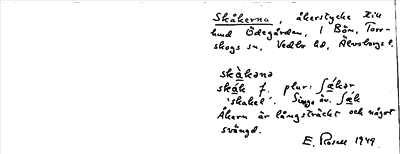 Skåkerna, åkerstycke till
hmd Ödegården, i Bön, Torr-
skogs sn, Vedbo hd, Älvsborgs l.
skàkənə
skák f. plur: ʃákər
'skakel'. Sing. av. ʃák
Åkern är långsträckt och något
svängd.
E. Rosell 1949.